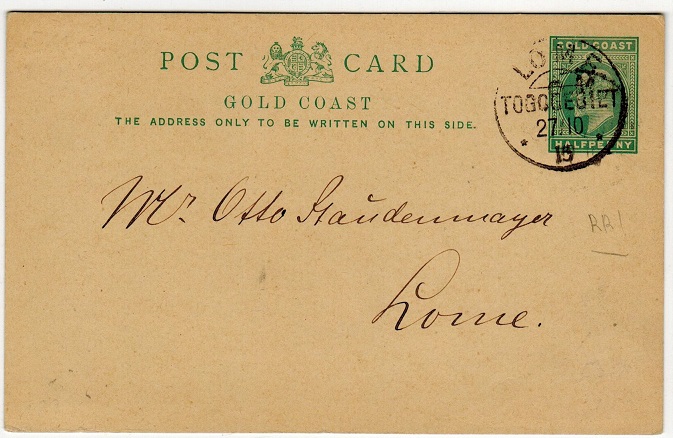 POST CARD
GOLD COAST
THE ADDRESS ONLY TO BE WRITTEN ON THIS SIDE.
GOLD COAST
HALFPENNY
TOGOGEBIET
27 10
15
Mr. Otto Staudenmayer
Lome.
RR!